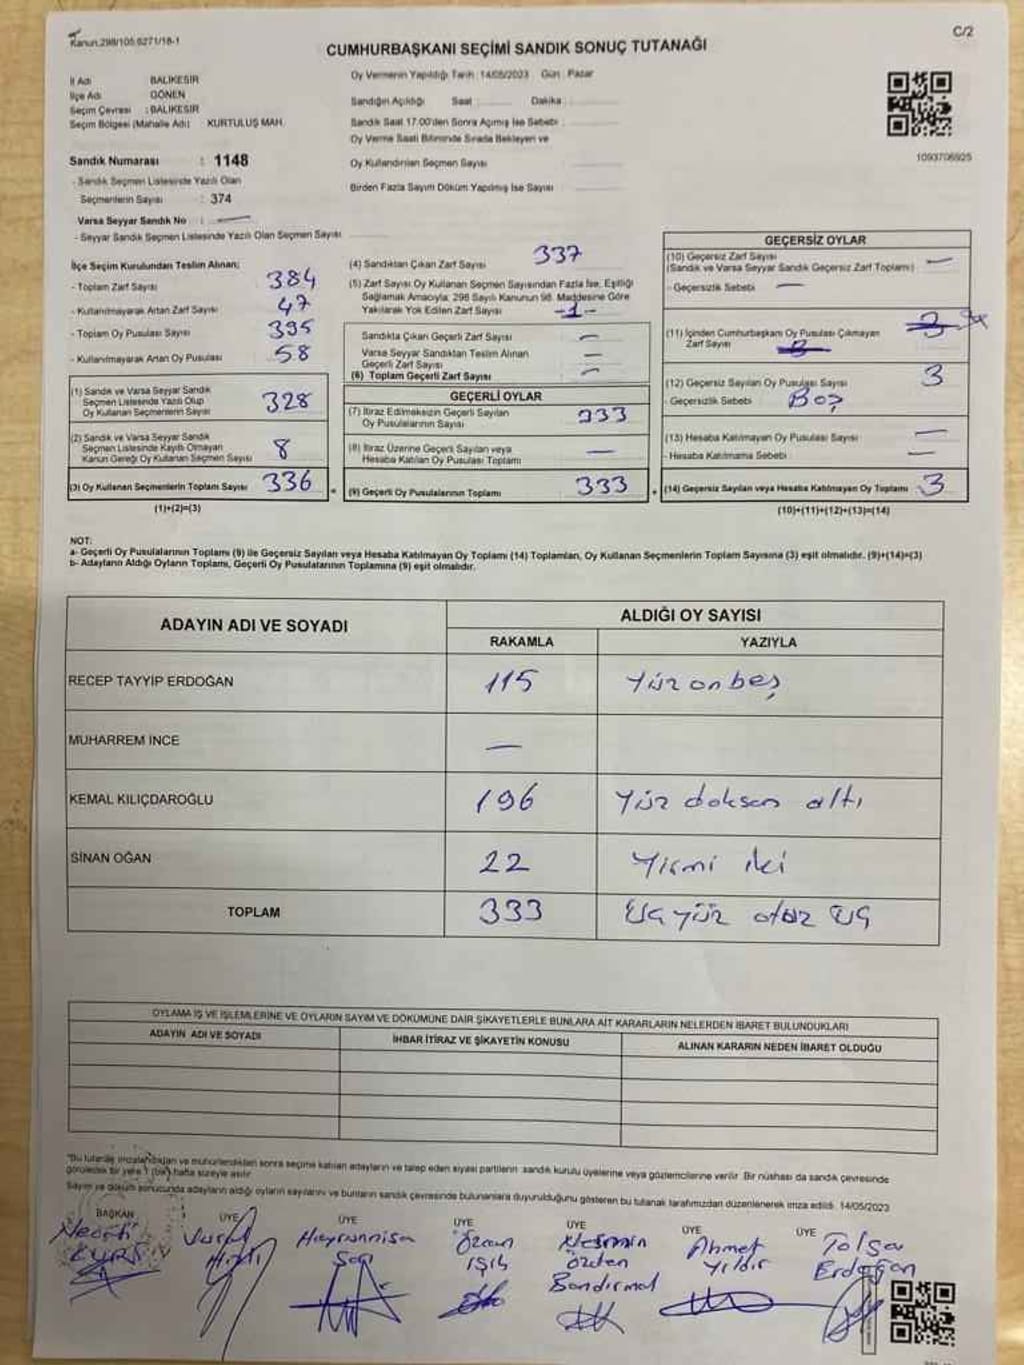 Kanun:298/105.6271/18-1
C/2
CUMHURBAŞKANI SEÇİMİ SANDIK SONUÇ TUTANAĞI
İl Adı BALIKESİR
İlçe Adı GÖNEN
Seçim Çevresi : BALIKESİR
Seçim Bölgesi (Mahalle Adı) KURTULUŞ MAH.
Sandık Numarası : 1148
- Sandık Seçmen Listesinde Yazılı Olan
Seçmenlerin Sayısı : 374
Varsa Seyyar Sandık No : —
- Seyyar Sandık Seçmen Listesinde Yazılı Olan Seçmen Sayısı
Oy Vermenin Yapıldığı Tarih : 14/05/2023 Gün : Pazar
Sandığın Açıldığı Saat Dakika
Sandık Saat 17.00'den Sonra Açımış İse Sebebi :
Oy Verme Saati Bitiminde Sırada Bekleyen ve
Oy Kullandırılan Seçmen Sayısı
Birden Fazla Sayım Döküm Yapılmış İse Sayısı
1093706925
İlçe Seçim Kurulundan Teslim Alınan;
- Toplam Zarf Sayısı 384
- Kullanılmayarak Artan Zarf Sayısı 47
- Toplam Oy Pusulası Sayısı 395
- Kullanılmayarak Artan Oy Pusulası 58
(1) Sandık ve Varsa Seyyar Sandık
Seçmen Listesinde Yazılı Olup
Oy Kullanan Seçmenlerin Sayısı 328
(2) Sandık ve Varsa Seyyar Sandık
Seçmen Listesinde Kayıtlı Olmayan
Kanun Gereği Oy Kullanan Seçmen Sayısı 8
(3) Oy Kullanan Seçmenlerin Toplam Sayısı 336
(1)+(2)=(3)
(4) Sandıktan Çıkan Zarf Sayısı 337
(5) Zarf Sayısı Oy Kullanan Seçmen Sayısından Fazla İse, Eşitliği
Sağlamak Amacıyla; 298 Sayılı Kanunun 98. Maddesine Göre
Yakılarak Yok Edilen Zarf Sayısı -1-
Sandıkta Çıkan Geçerli Zarf Sayısı —
Varsa Seyyar Sandıktan Teslim Alınan
Geçerli Zarf Sayısı —
(6) Toplam Geçerli Zarf Sayısı —
GEÇERLİ OYLAR
(7) İtiraz Edilmeksizin Geçerli Sayılan
Oy Pusulalarının Sayısı 333
(8) İtiraz Üzerine Geçerli Sayılan veya
Hesaba Katılan Oy Pusulası Toplamı —
(9) Geçerli Oy Pusulalarının Toplamı 333
GEÇERSİZ OYLAR
(10) Geçersiz Zarf Sayısı
(Sandık ve Varsa Seyyar Sandık Geçersiz Zarf Toplamı) —
- Geçersizlik Sebebi —
(11) İçinden Cumhurbaşkanı Oy Pusulası Çıkmayan
Zarf Sayısı
(12) Geçersiz Sayılan Oy Pusulası Sayısı 3
- Geçersizlik Sebebi Boş
(13) Hesaba Katılmayan Oy Pusulası Sayısı —
- Hesaba Katılmama Sebebi —
(14) Geçersiz Sayılan veya Hesaba Katılmayan Oy Toplamı 3
(10)+(11)+(12)+(13)=(14)
NOT:
a- Geçerli Oy Pusulalarının Toplamı (9) ile Geçersiz Sayılan veya Hesaba Katılmayan Oy Toplamı (14) Toplamları, Oy Kullanan Seçmenlerin Toplam Sayısına (3) eşit olmalıdır. (9)+(14)=(3)
b- Adayların Aldığı Oyların Toplamı, Geçerli Oy Pusulalarının Toplamına (9) eşit olmalıdır.
ADAYIN ADI VE SOYADI
ALDIĞI OY SAYISI
RAKAMLA YAZIYLA
RECEP TAYYİP ERDOĞAN 115 Yüz on beş
MUHARREM İNCE —
KEMAL KILIÇDAROĞLU 196 Yüz doksan altı
SİNAN OĞAN 22 Yirmi iki
TOPLAM 333 Üç yüz otuz üç
OYLAMA İŞ VE İŞLEMLERİNE VE OYLARIN SAYIM VE DÖKÜMÜNE DAİR ŞİKAYETLERLE BUNLARA AİT KARARLARIN NELERDEN İBARET BULUNDUKLARI
ADAYIN ADI VE SOYADI İHBAR İTİRAZ VE ŞİKAYETİN KONUSU ALINAN KARARIN NEDEN İBARET OLDUĞU
"Bu tutanak imzalandıktan ve mühürlendikten sonra seçime katılan adayların ve talep eden siyasi partilerin sandık kurulu üyelerine veya gözlemcilerine verilir. Bir nüshası da sandık çevresinde
görülecek bir yere 1 (bir) hafta süreyle asılır.
Sayım ve döküm sonucunda adayların aldığı oyların sayılarını ve bunların sandık çevresinde bulunanlara duyurulduğunu gösteren bu tutanak tarafımızdan düzenlenerek imza edildi. 14/05/2023
BAŞKAN ÜYE ÜYE ÜYE ÜYE ÜYE ÜYE
Hayrunnisa Özcan Nesrin Ahmet Tolga
Işık Özden Yıldır Erdoğan
Bandırmal